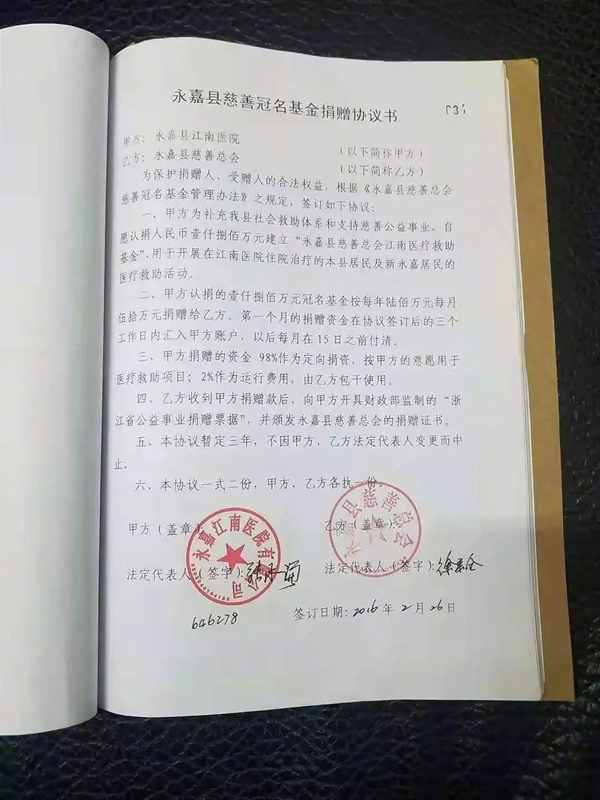 永嘉县慈善冠名基金捐赠协议书
甲方：永嘉县江南医院 （以下简称甲方）
乙方：永嘉县慈善总会 （以下简称乙方）
为保护捐赠人、受赠人的合法权益，根据《永嘉县慈善总会
慈善冠名基金管理办法》之规定，签订如下协议：
一、甲方为补充我县社会救助体系和支持慈善公益事业，自
愿认捐人民币壹仟捌佰万元建立“永嘉县慈善总会江南医疗救助
基金”，用于开展在江南医院住院治疗的本县居民及新永嘉居民的
医疗救助活动。
二、甲方认捐的壹仟捌佰万元冠名基金按每年陆佰万元每月
伍拾万元捐赠给乙方。第一个月的捐赠资金在协议签订后的三个
工作日内汇入甲方账户，以后每月在15日之前付清。
三、甲方捐赠的资金 98%作为定向捐资，按甲方的意愿用于
医疗救助项目；2%作为运行费用，由乙方包干使用。
四、乙方收到甲方捐赠款后，向甲方开具财政部监制的“浙
江省公益事业捐赠票据”，并颁发永嘉县慈善总会的捐赠证书。
五、本协议暂定三年，不因甲方、乙方法定代表人变更而中
止。
六、本协议一式二份，甲方、乙方各执一份。
甲方（盖章）： 乙方（盖章）：
永嘉江南医院有限公司
永嘉县慈善总会
法定代表人（签字）： 法定代表人（签字）：
646278
签订日期：2016年2月26日